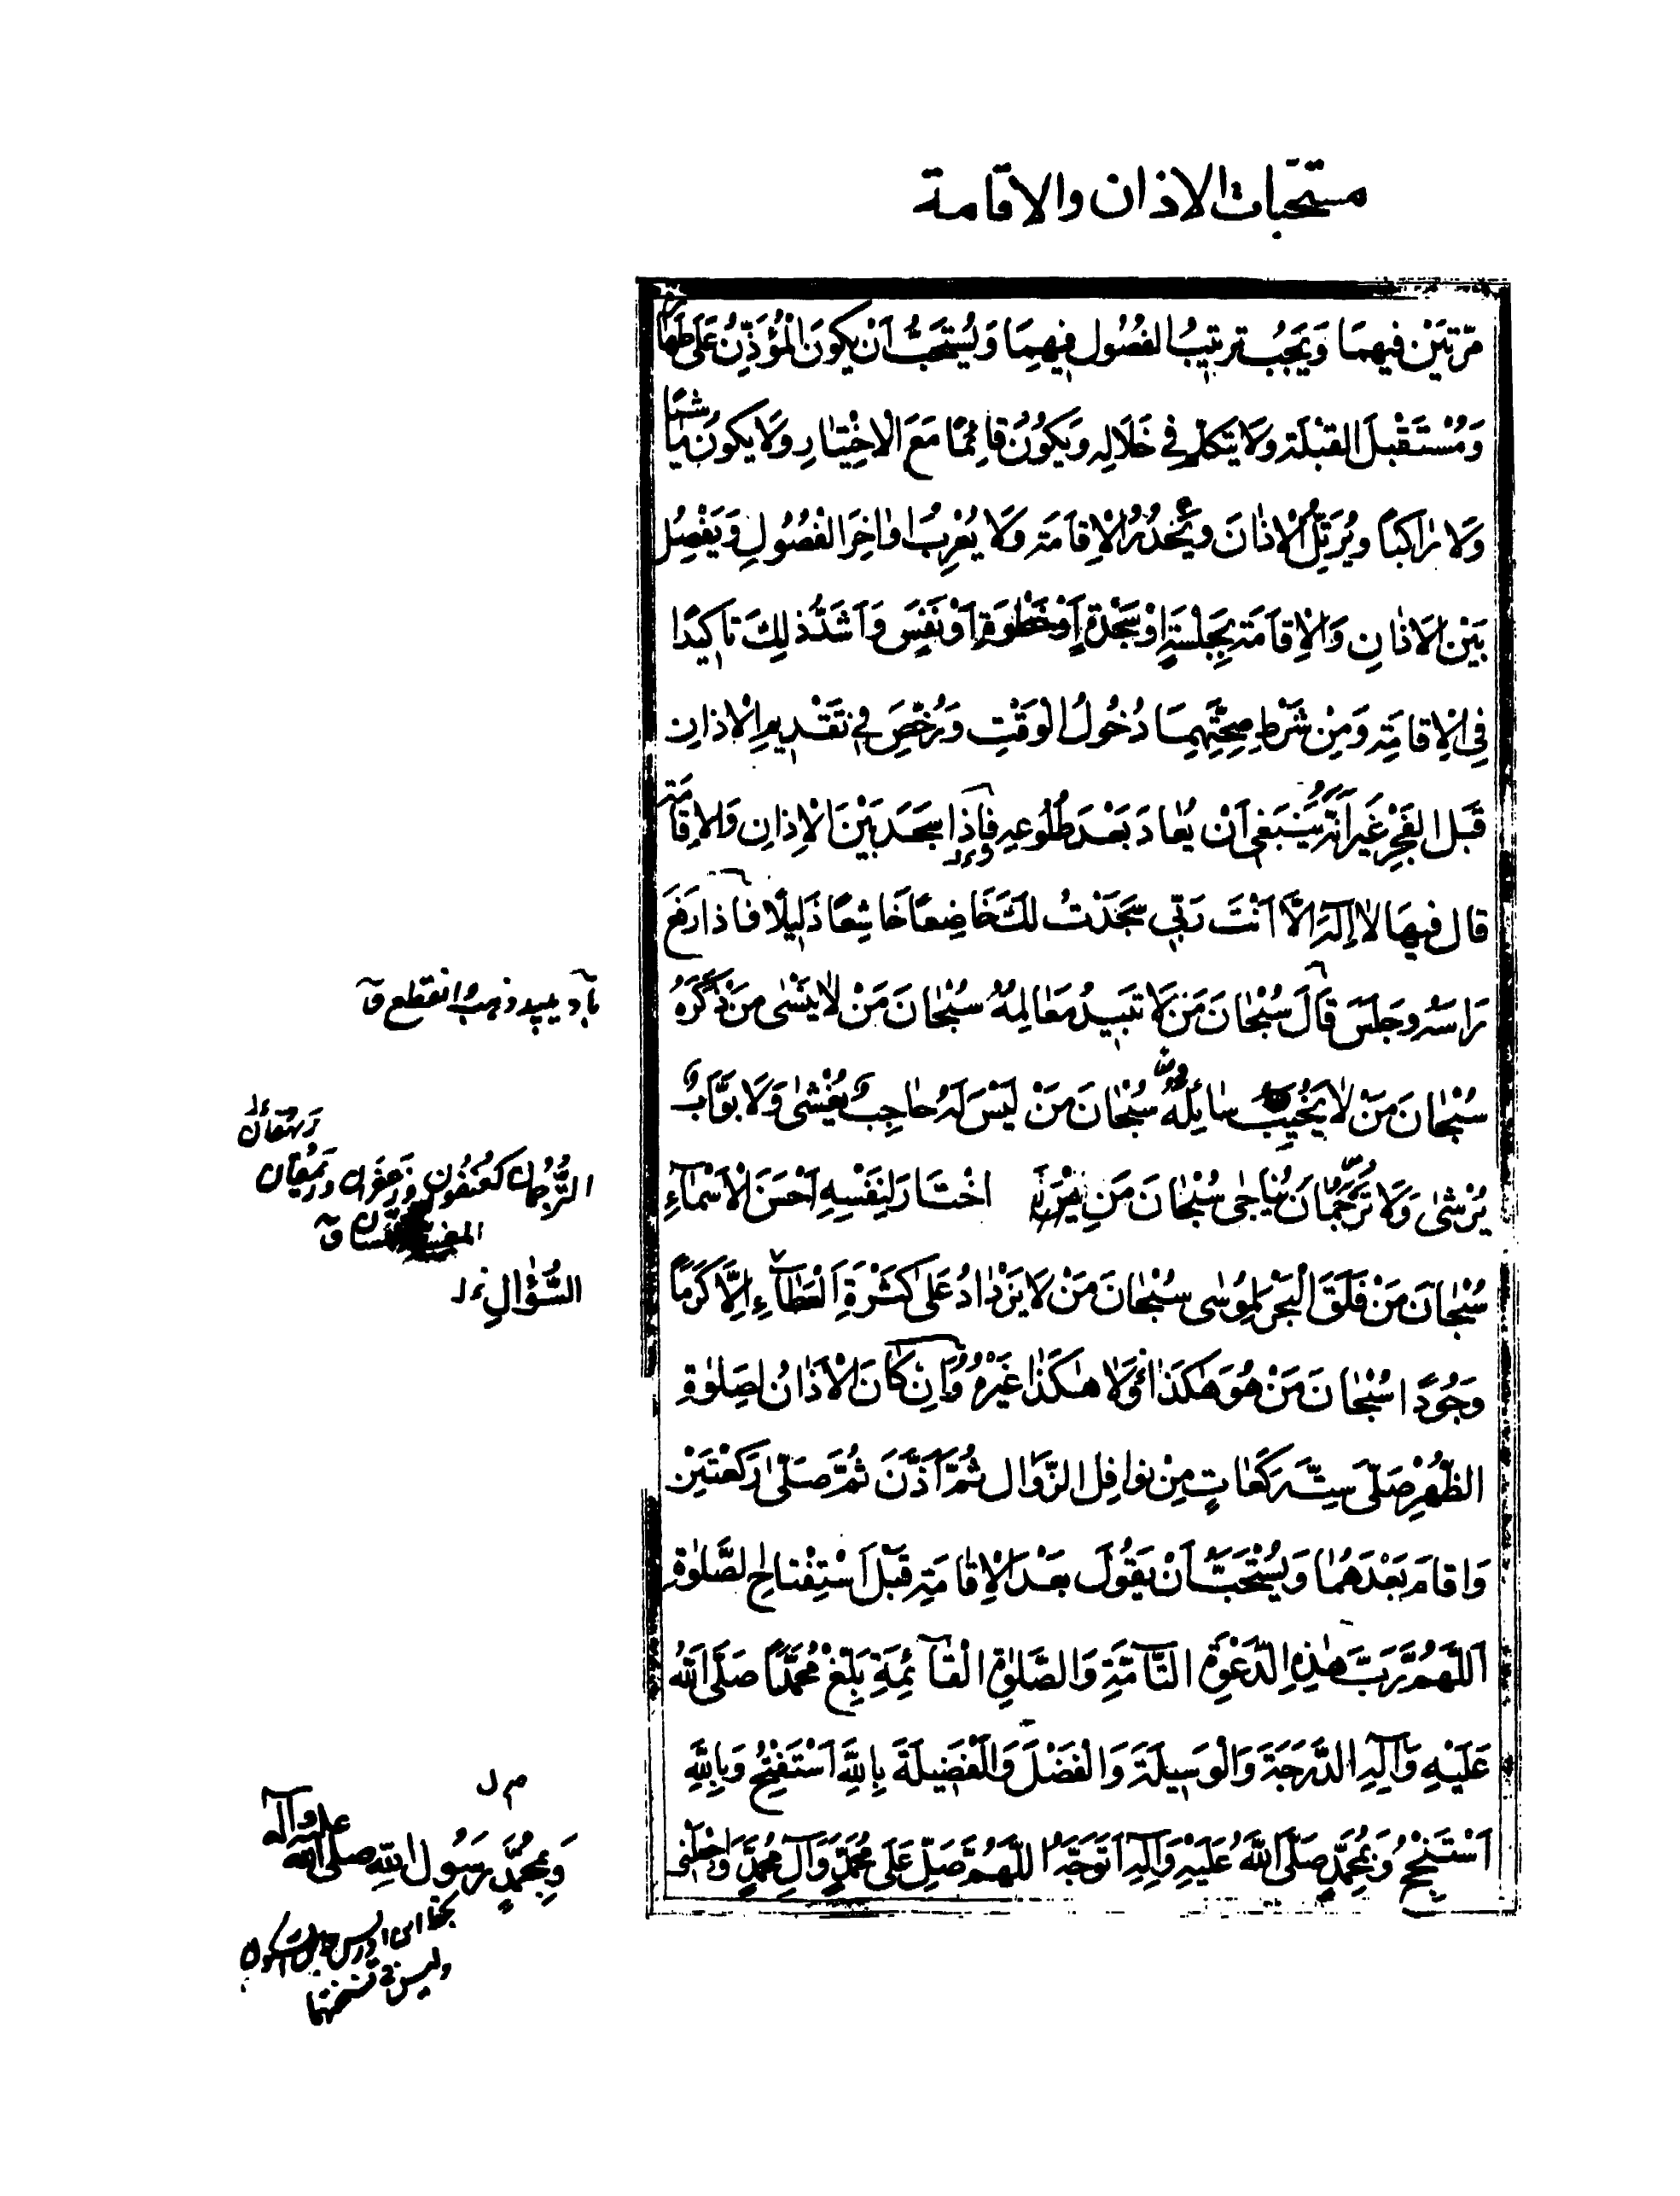 مستحبات الاذان والاقامة
مَرّتَيْن فيهِمَا وَيَجِبُ ترتيبُ الفُصُول فيهِمَا وَيُستَحَبُّ اَنْ يكونَ الْمُؤَذِّنُ عَلَى طهَارة
وَمُسْتَقْبِلَ القِبْلَة ولا يَتكلم في خَلَالِه وَيَكُوُنُ قائِمًا مَعَ الْاِخْتِيَارِ ولَا يكونَ مَاشيًا
وَلا رٰاكِبًا ويُرَتِّلُ الْاذٰانَ ويَحْدُرُ الْاِقامَة ولَا يُعْرِبُ اوٰاخِرَ الفُصُولِ وَيَفْصِلُ
بَيْنَ الاَذانِ وَالْاِقامَة بِجَلْسَةٍ اوْ سَجْدَةٍ اَوْ خَطْوَةٍ اَوْ نَفَسٍ وَاَشَدُّ ذلِكَ تاكيدًا
فِي الْاِقامَةِ وَمِنْ شَرْطِ صِحَّتِهِمَا دُخُولُ الْوَقْتِ وَرُخِّصَ في تَقْديمِ الْاَذانِ
قَبْل الفَجْرِ غَيْرَ اَنَّهُ يَنْبَغى اَنْ يُعٰادَ بَعْدَ طُلُوعِهِ فَاِذا سَجَدَ بَيْنَ الْاذانِ وَالاِقامَة
قال فيهَا لا اِلٰهَ اِلَّا اَنْتَ رَبّي سَجَدْتُ لَكَ خَاضِعًا خَاشِعًا ذَليلًا فاذا رَفَعَ
رَاسَهُ وجَلَسَ قَالَ سُبْحٰانَ مَنْ لَا تَبيدُ مَعَالِمُهُ سُبْحٰانَ مَنْ لا يَنْسٰى مَنْ ذَكَرَهُ
سُبْحٰانَ مَنْ لا يُخَيِّبُ سٰائِلَهُ سُبْحٰانَ مَنْ لَيْسَ لَهُ حٰاجِبٌ يُغْشٰى وَلَا بَوَّابٌ
يُرْشىٰ وَلَا تَرْجُمَانٌ يُنٰاجٰى سُبْحٰانَ مَنِ اخْتَارَ لِنَفْسِهِ اَحْسَنَ الْاَسْمٰاءِ
سُبْحٰانَ مَنْ فَلَقَ الْبَحْرَ لِمُوسٰى سُبْحٰانَ مَنْ لَا يَزْدٰادُ عَلى كَثْرَةِ الْعَطٰاءِ اِلَّا كَرَمًا
وَجُودًا سُبْحٰانَ مَنْ هُوَ هٰكَذٰا وَلا هٰكَذٰا غَيْرُهُ وَاِنْ كٰانَ الْاَذٰانُ لِصَلٰوةِ
الظُّهْرِ صَلّىٰ سِتَّ رَكَعٰاتٍ مِنْ نوافِل الزَّوَال ثُمَّ اَذَّنَ ثُمَّ صَلّىٰ رَكْعَتَيْنِ
وَاقامَ بَعْدَهُمٰا وَيُسْتَحَبُّ اَنْ يَقُولَ بَعْدَ الْاِقٰامَةِ قَبْلَ اسْتِفْتٰاحِ الصَّلٰوةِ
اَللّهُمَّ رَبَّ هٰذِهِ الدَّعْوَةِ التَّآمَّةِ وَالصَّلٰوةِ الْقٰآئِمَةِ بَلِّغْ مُحَمَّدًا صَلَّى اللهُ
عَلَيْهِ وَآلِهِ الدَّرَجَةَ وَالْوَسيلَةَ وَالْفَضْلَ وَالْفَضيلَةَ بِاللهِ اَسْتَفْتِحُ وَبِاللهِ
اَسْتَنْجِحُ وَبِمُحَمَّدٍ صَلَّى اللهُ عَلَيْهِ وَآلِهِ اَتَوَجَّهُ اللّهُمَّ صَلِّ عَلى مُحَمَّدٍ وَآلِ مُحَمَّدٍ وَاجْعَلْنى
باد يبيد ذهب وانقطع ق
التَّرْجُمان كعُنْفُوان وزَعْفَران
السُّؤالِ
وَبِمُحَمَّدٍ رَسُولِ اللهِ صلى الله عليه وآله
وليس في نسختها